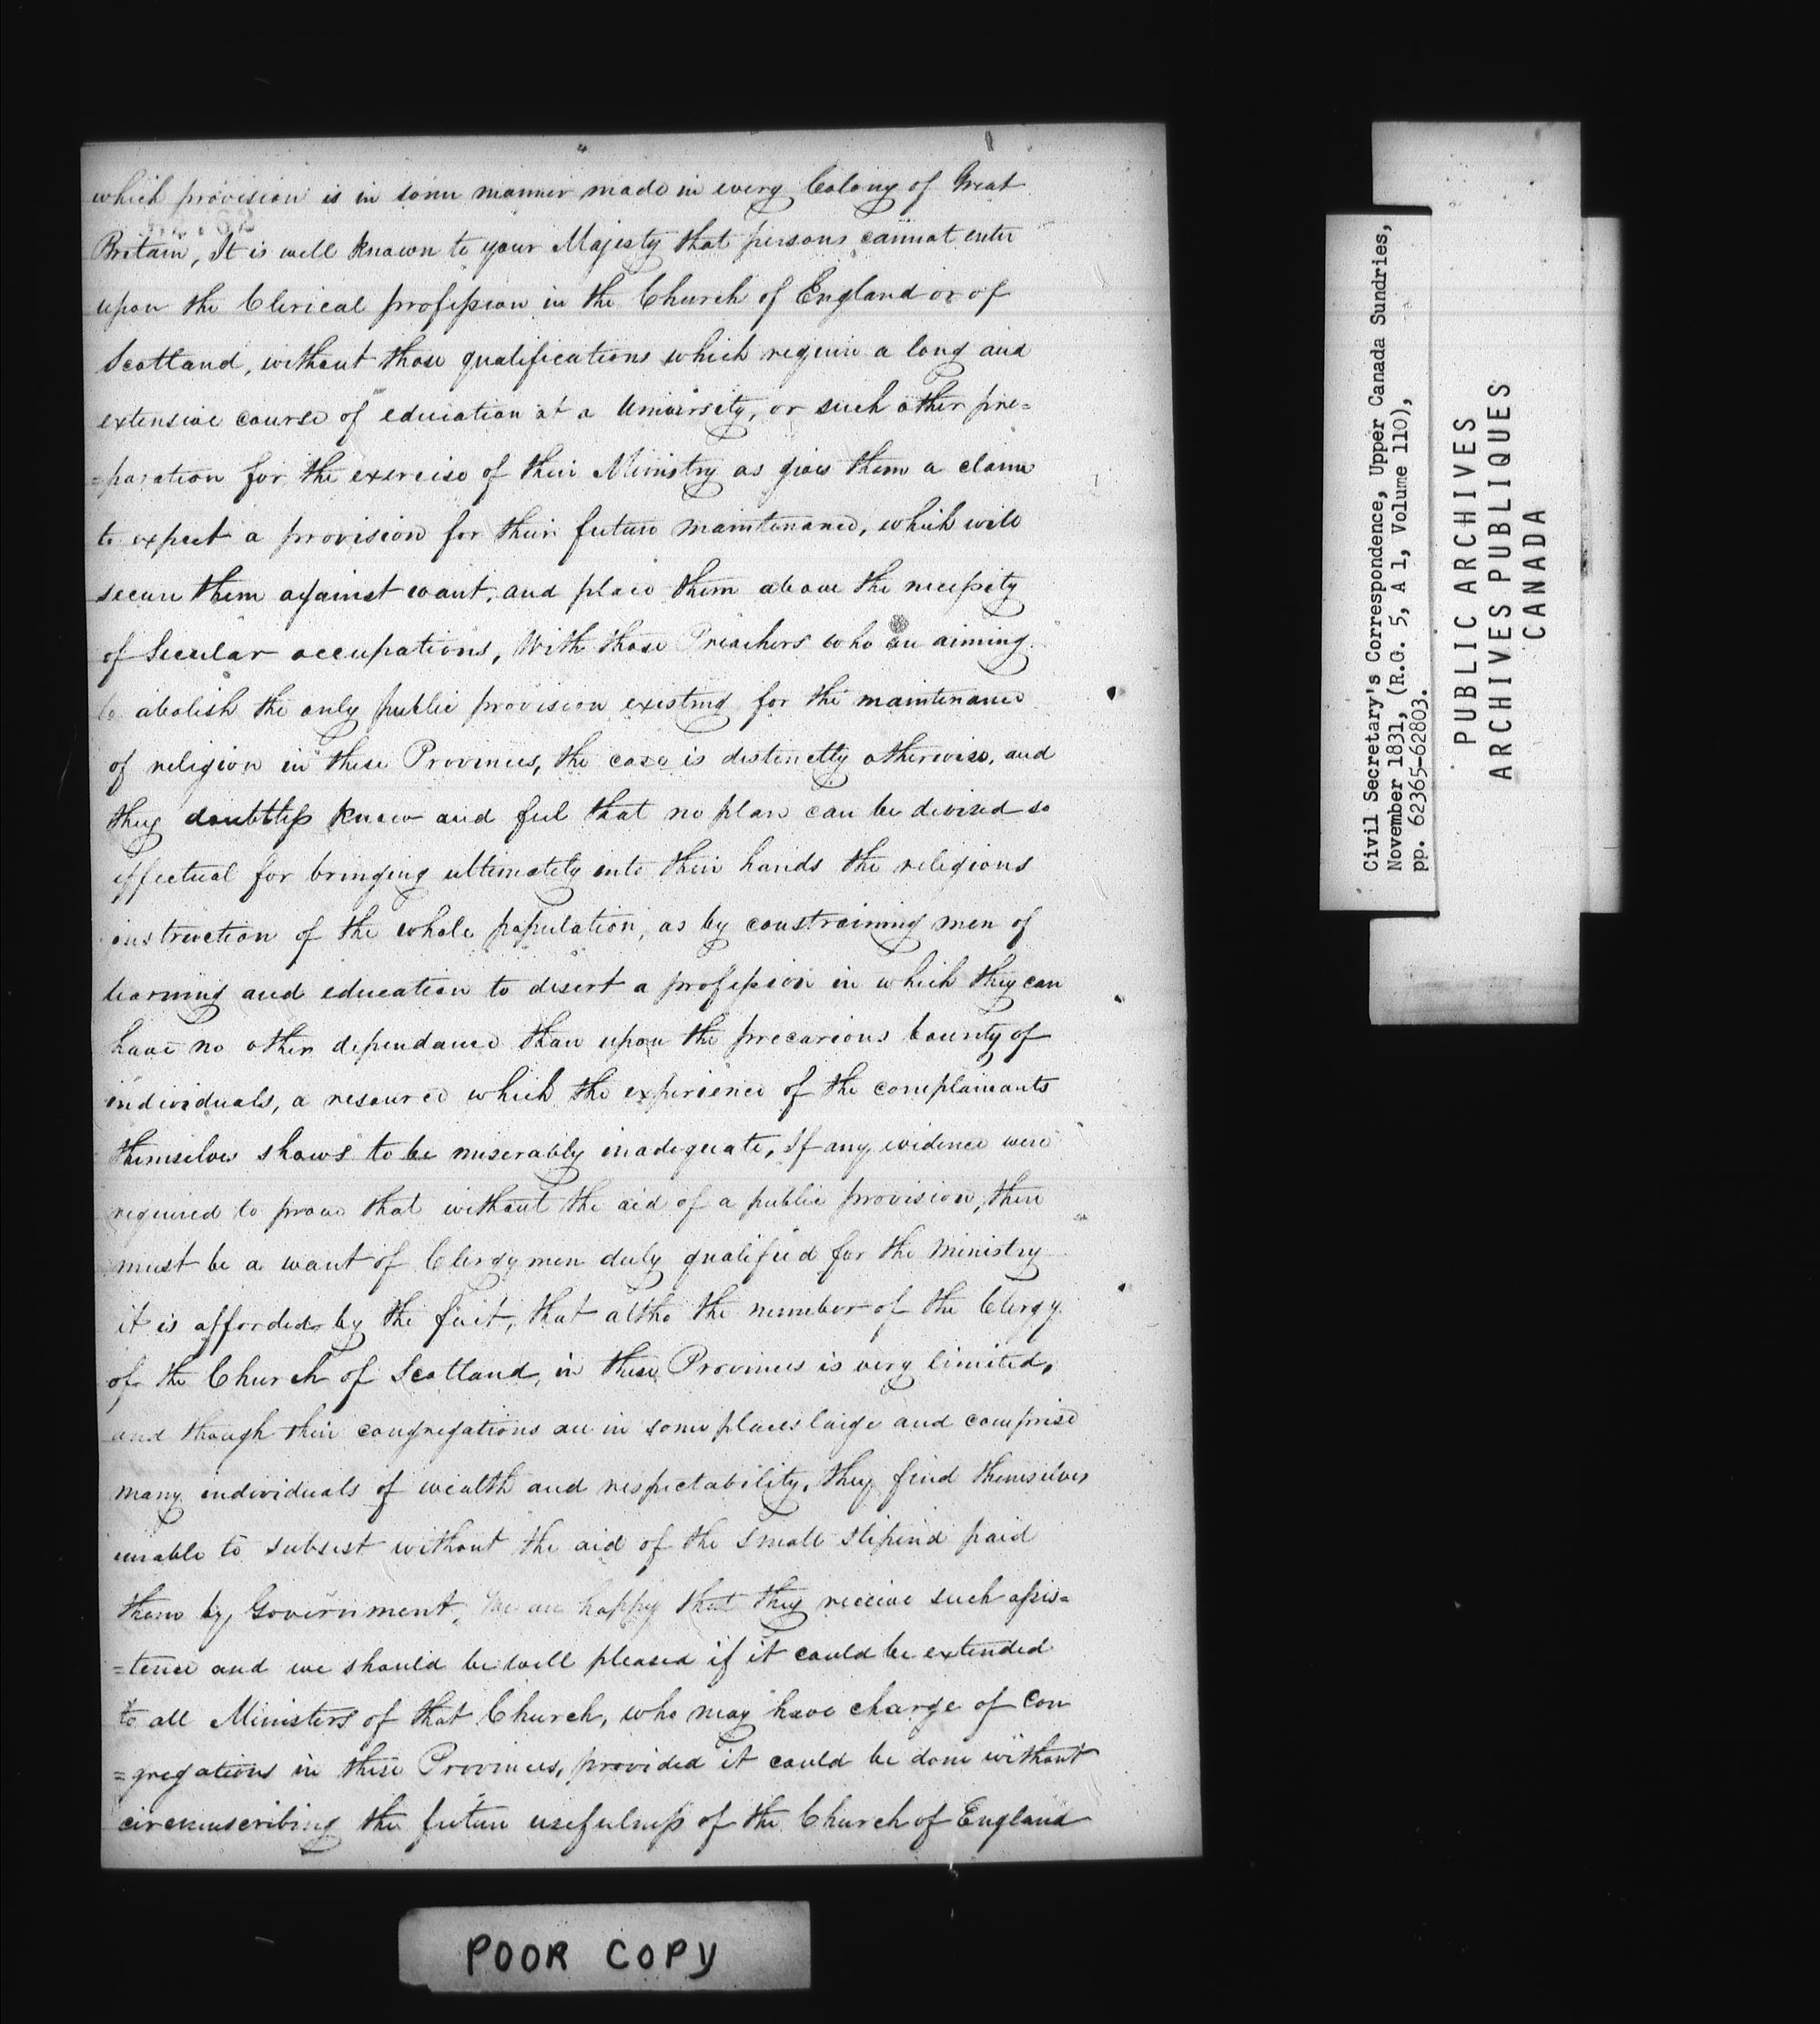 which provision is in some manner made in every Colony of Great
Britain, It is well known to your Majesty that persons cannot enter
upon the Clerical profession in the Church of England or of
Scotland, without those qualifications which require a long and
extensive course of education at a University, or such other pre=
=paration for the exercise of their Ministry as gives them a claim
to expect a provision for their future maintenance, which will
secure them against want, and place them above the necessity
of Secular occupations, With those Preachers who are aiming
to abolish the only public provision existing for the maintenance
of religion in these Provinces, the case is distinctly otherwise, and
they doubtless know and feel that no plan can be devised so
effectual for bringing ultimately into their hands the religious
instruction of the whole population, as by constraining men of
learning and education to desert a profession in which they can
have no other dependance than upon the precarious bounty of
individuals, a resource which the experience of the complainants
themselves shows to be miserably inadequate, If any evidence were
required to prove that without the aid of a public provision, there
must be a want of Clergymen duly qualified for the Ministry
it is afforded by the fact, that altho the number of the Clergy
of the Church of Scotland, in these Provinces is very limited,
and though their congregations are in some places large and comprise
many individuals of wealth and respectability, they find themselves
unable to subsist without the aid of the small stipend paid
them by Government, We are happy that they receive such assis=
=tence and we should be well pleased if it could be extended
to all Ministers of that Church, who may have charge of Con
=gregations in these Provinces, provided it could be done without
circumscribing the future usefulness of the Church of England
POOR COPY
Civil Secretary's Correspondence, Upper Canada Sundries,
November 1831, (R.G. 5, A 1, Volume 110),
pp. 62365-62803.
PUBLIC ARCHIVES
ARCHIVES PUBLIQUES
CANADA